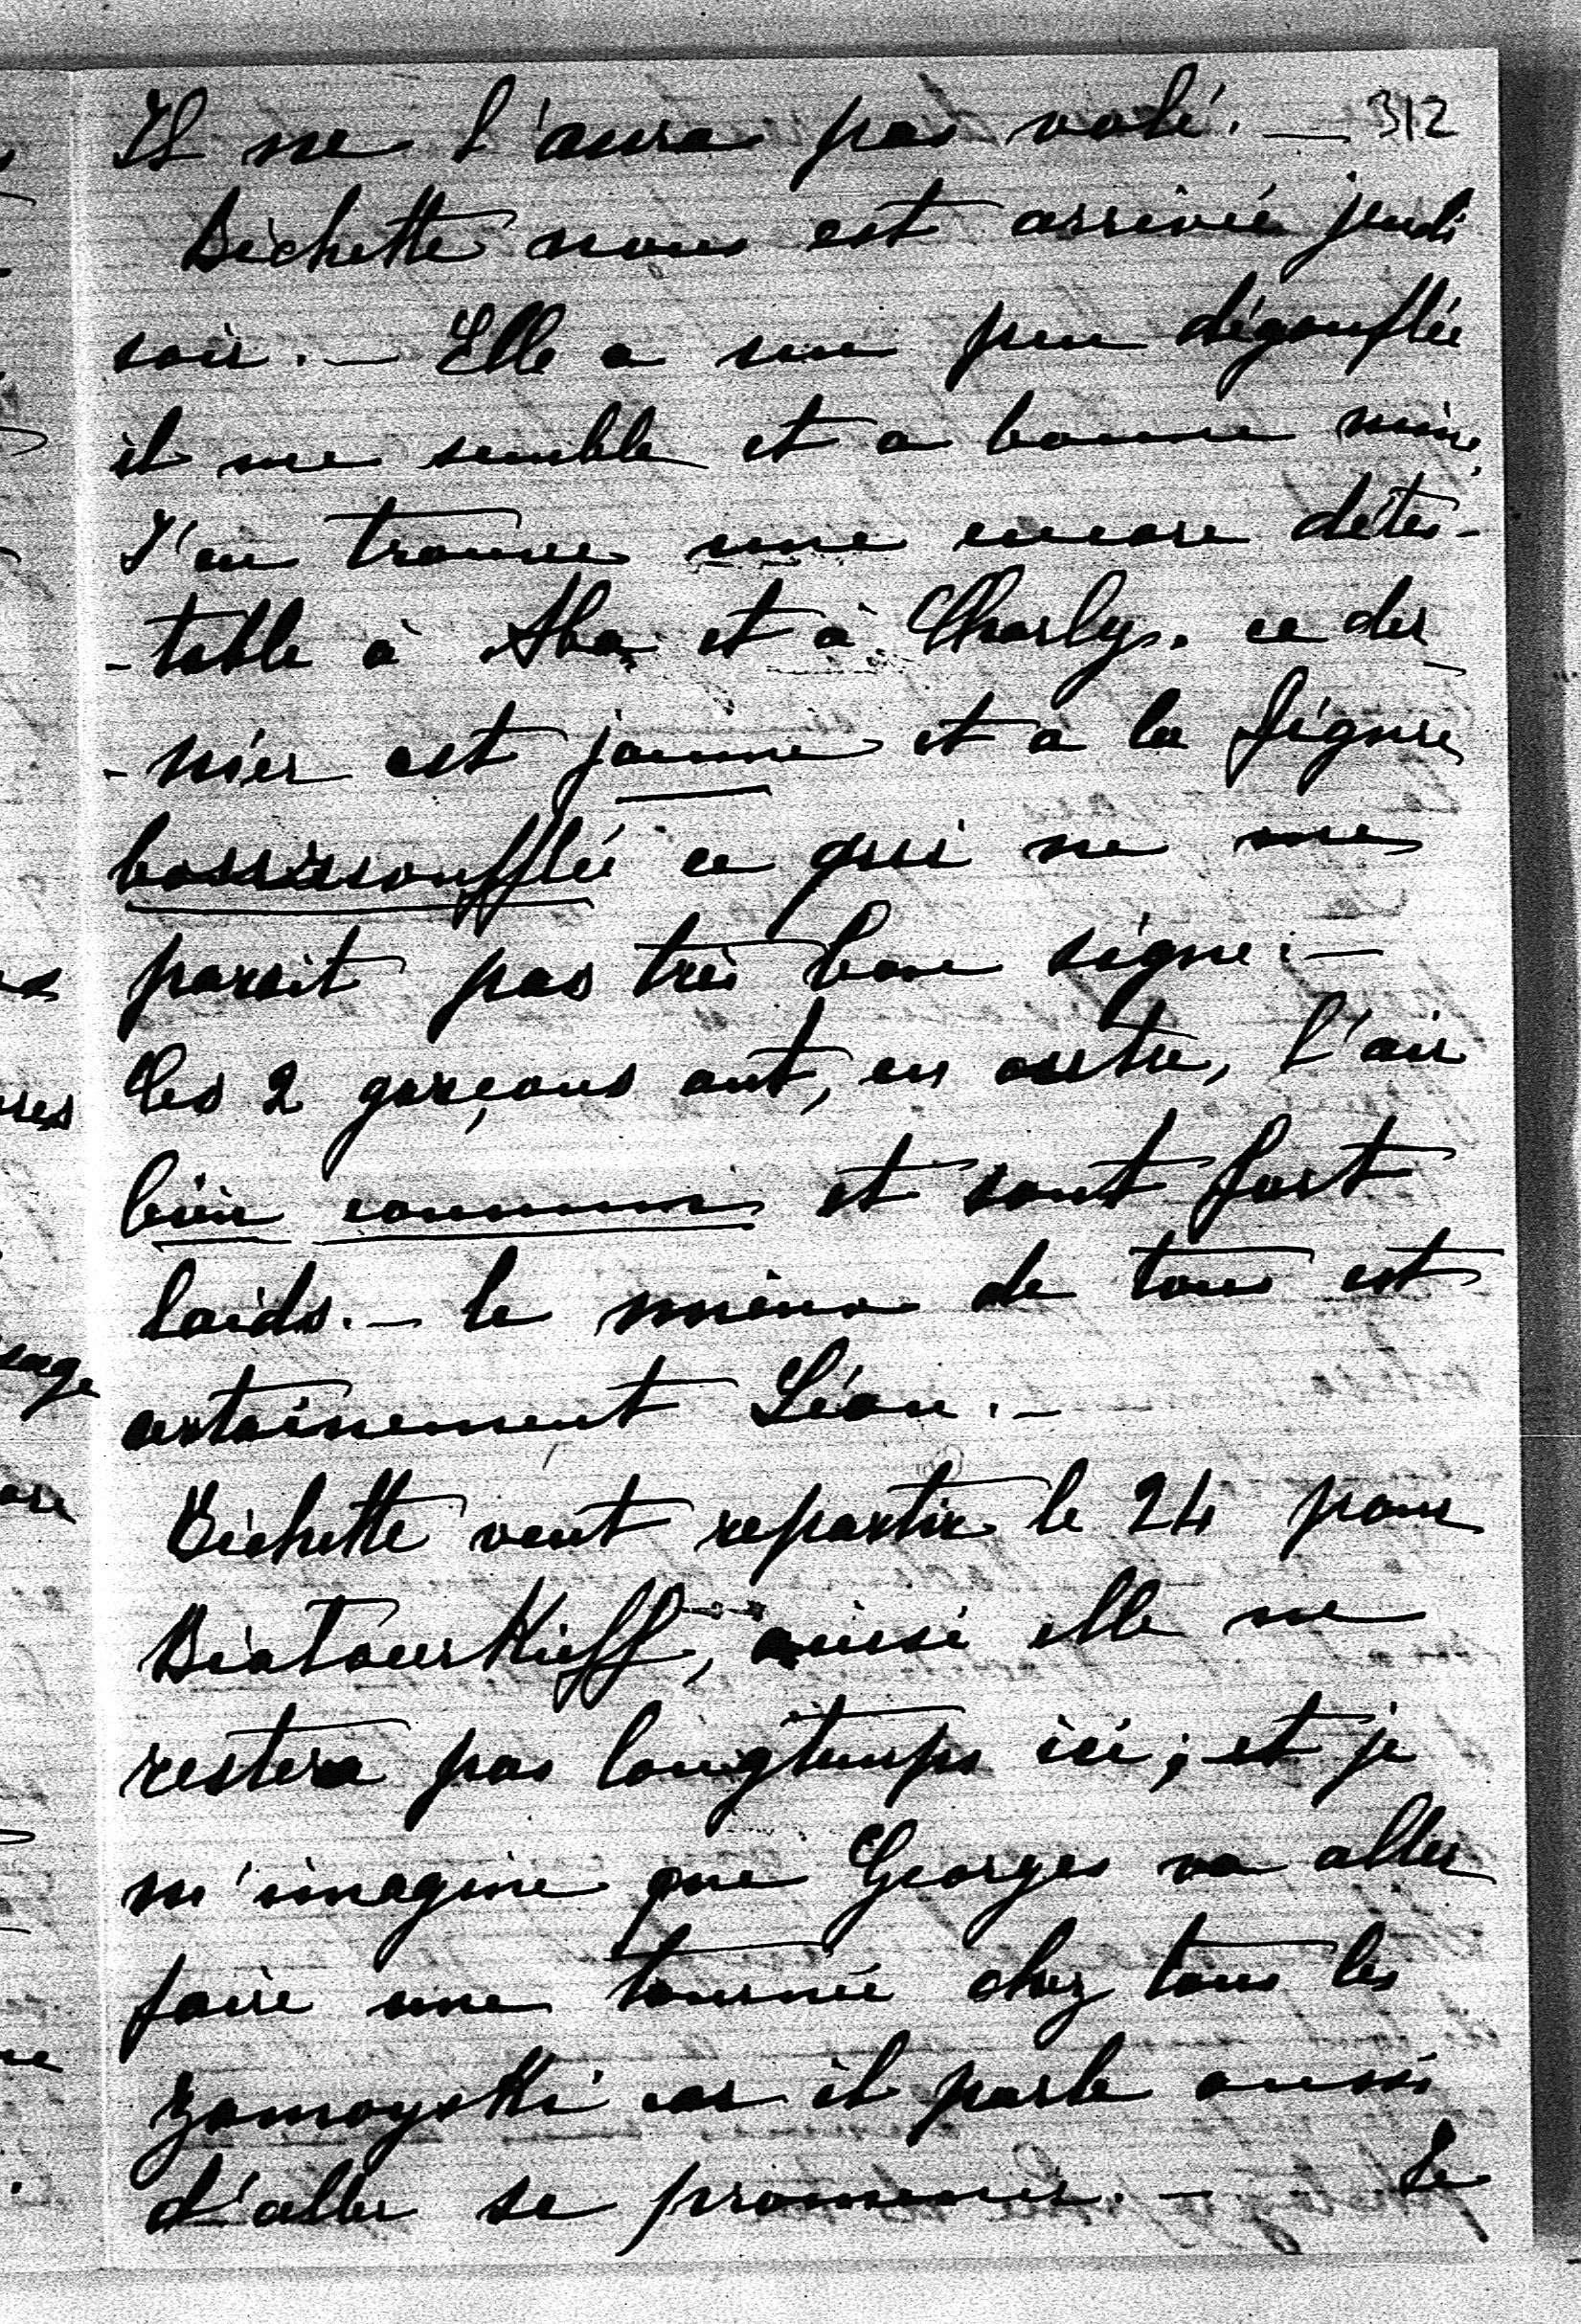 Il ne l'aura pas volé. — 312
Bichette nous est arrivée jeudi
soir. — Elle a un peu dégonflée
il me semble et a bonne mine,
J'en trouve une encore détes-
-table à Aba et à Charly. ce der
-nier est jaune et a la figure
boursoufflée ce qui ne me
parait pas très bon signe. —
Les 2 garçons ont, en outre, l'air
bien communs et sont fort
laids. — le mieux de tous est
certainement Léon. —
Bichette veut repartir le 24 pour
Biatourkieff, ainsi elle ne
restera pas longtemps ici; et je
m'imagine que Georges va aller
faire une tournée chez tous les
Zamoyski car il parle aussi
d'aller se promener. — Le